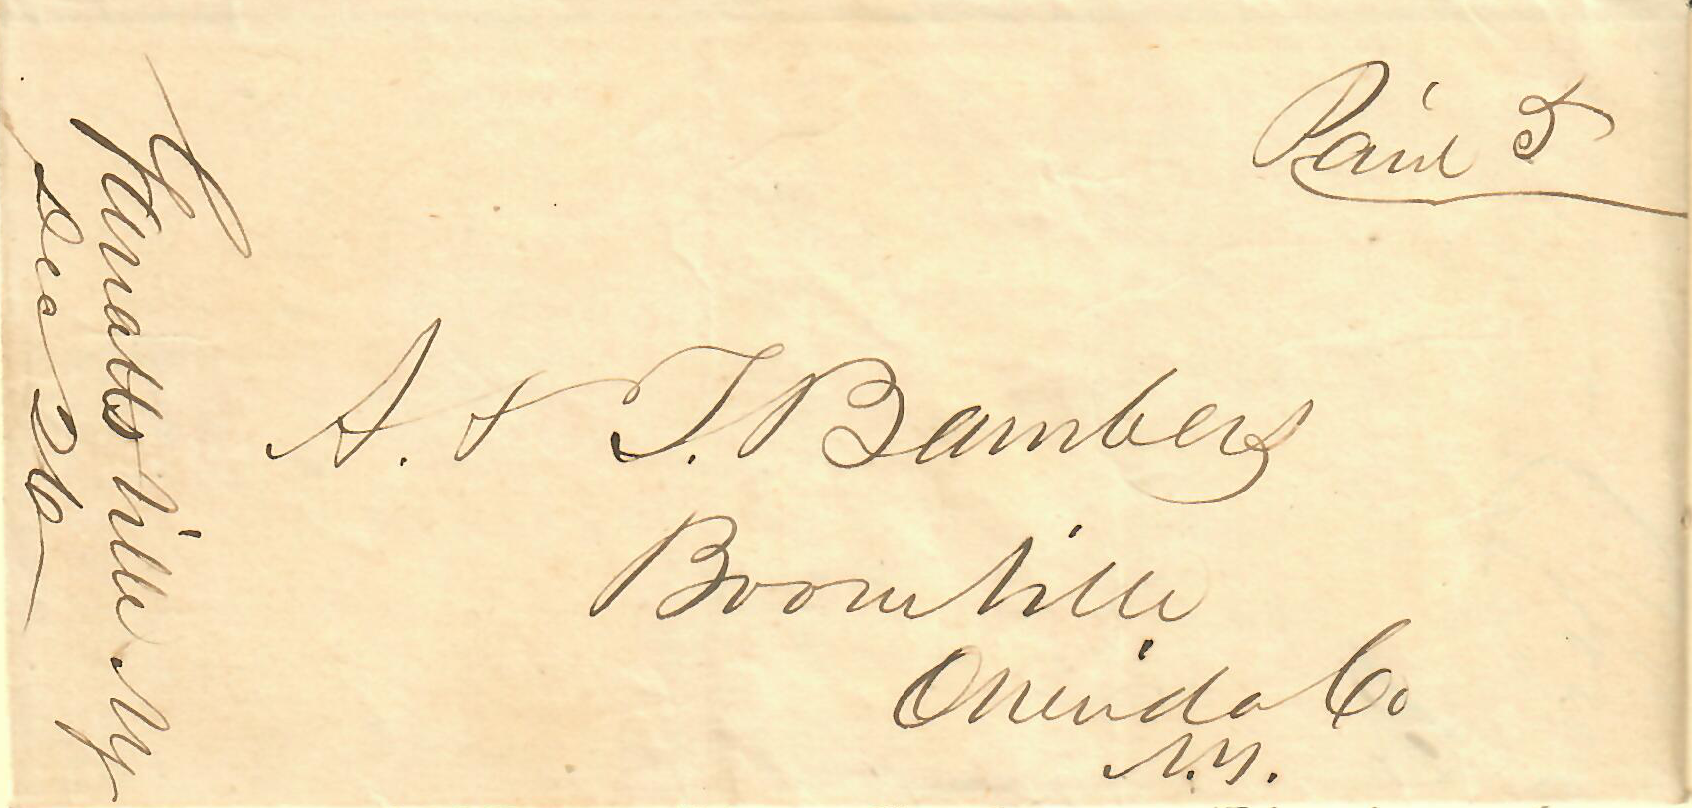 Paid 5
A. & T.
Boonville
Oneida Co
N.Y.
ville NY
Dec 26